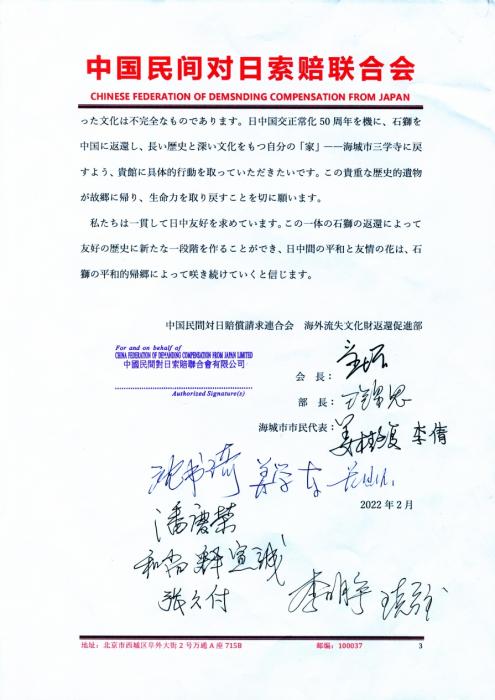 中国民间对日索赔联合会
CHINESE FEDERATION OF DEMSNDING COMPENSATION FROM JAPAN
った文化は不完全なものであります。日中国交正常化 50 周年を機に、石獅を
中国に返還し、長い歴史と深い文化をもつ自分の「家」——海城市三学寺に戻
すよう、貴館に具体的行動を取っていただきたいです。この貴重な歴史的遺物
が故郷に帰り、生命力を取り戻すことを切に願います。
私たちは一貫して日中友好を求めています。この一体の石獅の返還によって
友好の歴史に新たな一段階を作ることができ、日中間の平和と友情の花は、石
獅の平和的帰郷によって咲き続けていくと信じます。
中国民間対日賠償請求連合会 海外流失文化財返還促進部
For and on behalf of
CHINA FEDERATION OF DEMANDING COMPENSATION FROM JAPAN LIMITED
中國民間對日索賠聯合會有限公司
Authorized Signature(s)
会 長：
部 長：
海城市市民代表： 李倩
2022 年 2 月
潘慶榮
和尚釋宣誠
張久付
地址：北京市西城区阜外大街 2 号万通 A 座 715B 邮编：100037 3